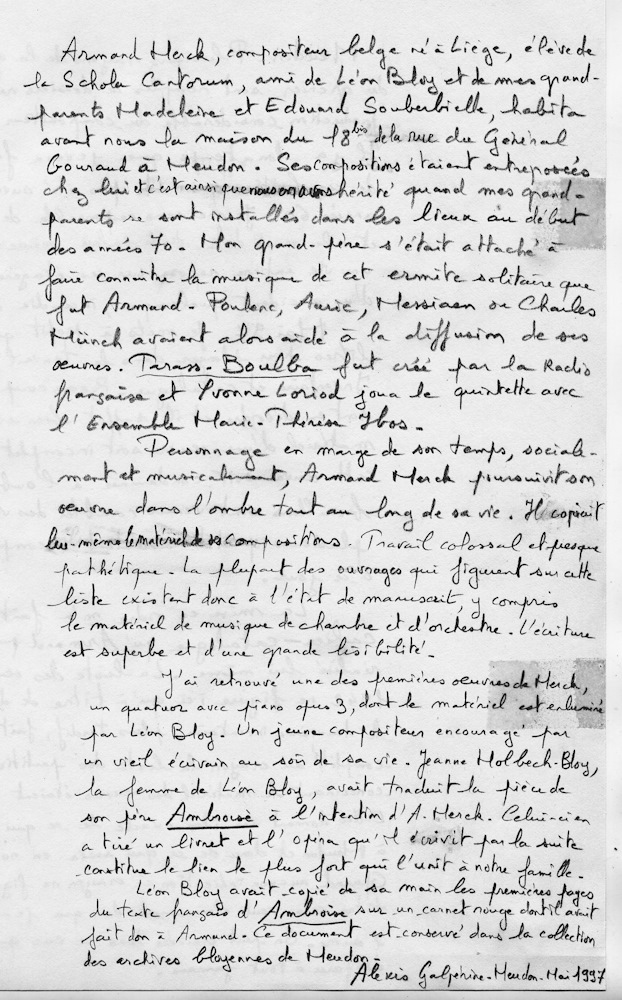 Armand Merck, compositeur belge né à Liège, élève de
la Schola Cantorum, ami de Léon Bloy et de mes grand-
parents Madeleine et Edouard Souberbielle, habita
avant nous la maison du 18bis de la rue du Général
Gouraud à Meudon. Ses compositions étaient entreposées
chez lui et c'est ainsi que nous en avons hérité quand mes grand-
parents se sont installés dans les lieux au début
des années 70. Mon grand-père s'était attaché à
faire connaître la musique de cet ermite solitaire que
fut Armand. Poulenc, Auric, Messiaen ou Charles
Münch avaient alors aidé à la diffusion de ses
œuvres. Tarass-Boulba fut créé par la Radio
française et Yvonne Loriod joua le quintette avec
l'Ensemble Marie-Thérèse Ibos.
Personnage en marge de son temps, sociale-
ment et musicalement, Armand Merck poursuivit son
œuvre dans l'ombre tout au long de sa vie. Il copiait
lui-même le matériel de ses compositions. Travail colossal et presque
pathétique. La plupart des ouvrages qui figurent sur cette
liste existent donc à l'état de manuscrit, y compris
le matériel de musique de chambre et d'orchestre. L'écriture
est superbe et d'une grande lisibilité.
J'ai retrouvé une des premières œuvres de Merck,
un quatuor avec piano opus 3, dont le matériel est enluminé
par Léon Bloy. Un jeune compositeur encouragé par
un vieil écrivain au soir de sa vie. Jeanne Molbeck-Bloy,
la femme de Léon Bloy, avait traduit la pièce de
son père Ambroise à l'intention d'A. Merck. Celui-ci en
a tiré un livret et l'opéra qu'il écrivit par la suite
constitue le lien le plus fort qui l'unit à notre famille.
Léon Bloy avait copié de sa main les premières pages
du texte français d'Ambroise sur un carnet rouge dont il avait
fait don à Armand. Ce document est conservé dans la collection
des archives bloyennes de Meudon.
Alexis Galpérine - Meudon - Mai 1997